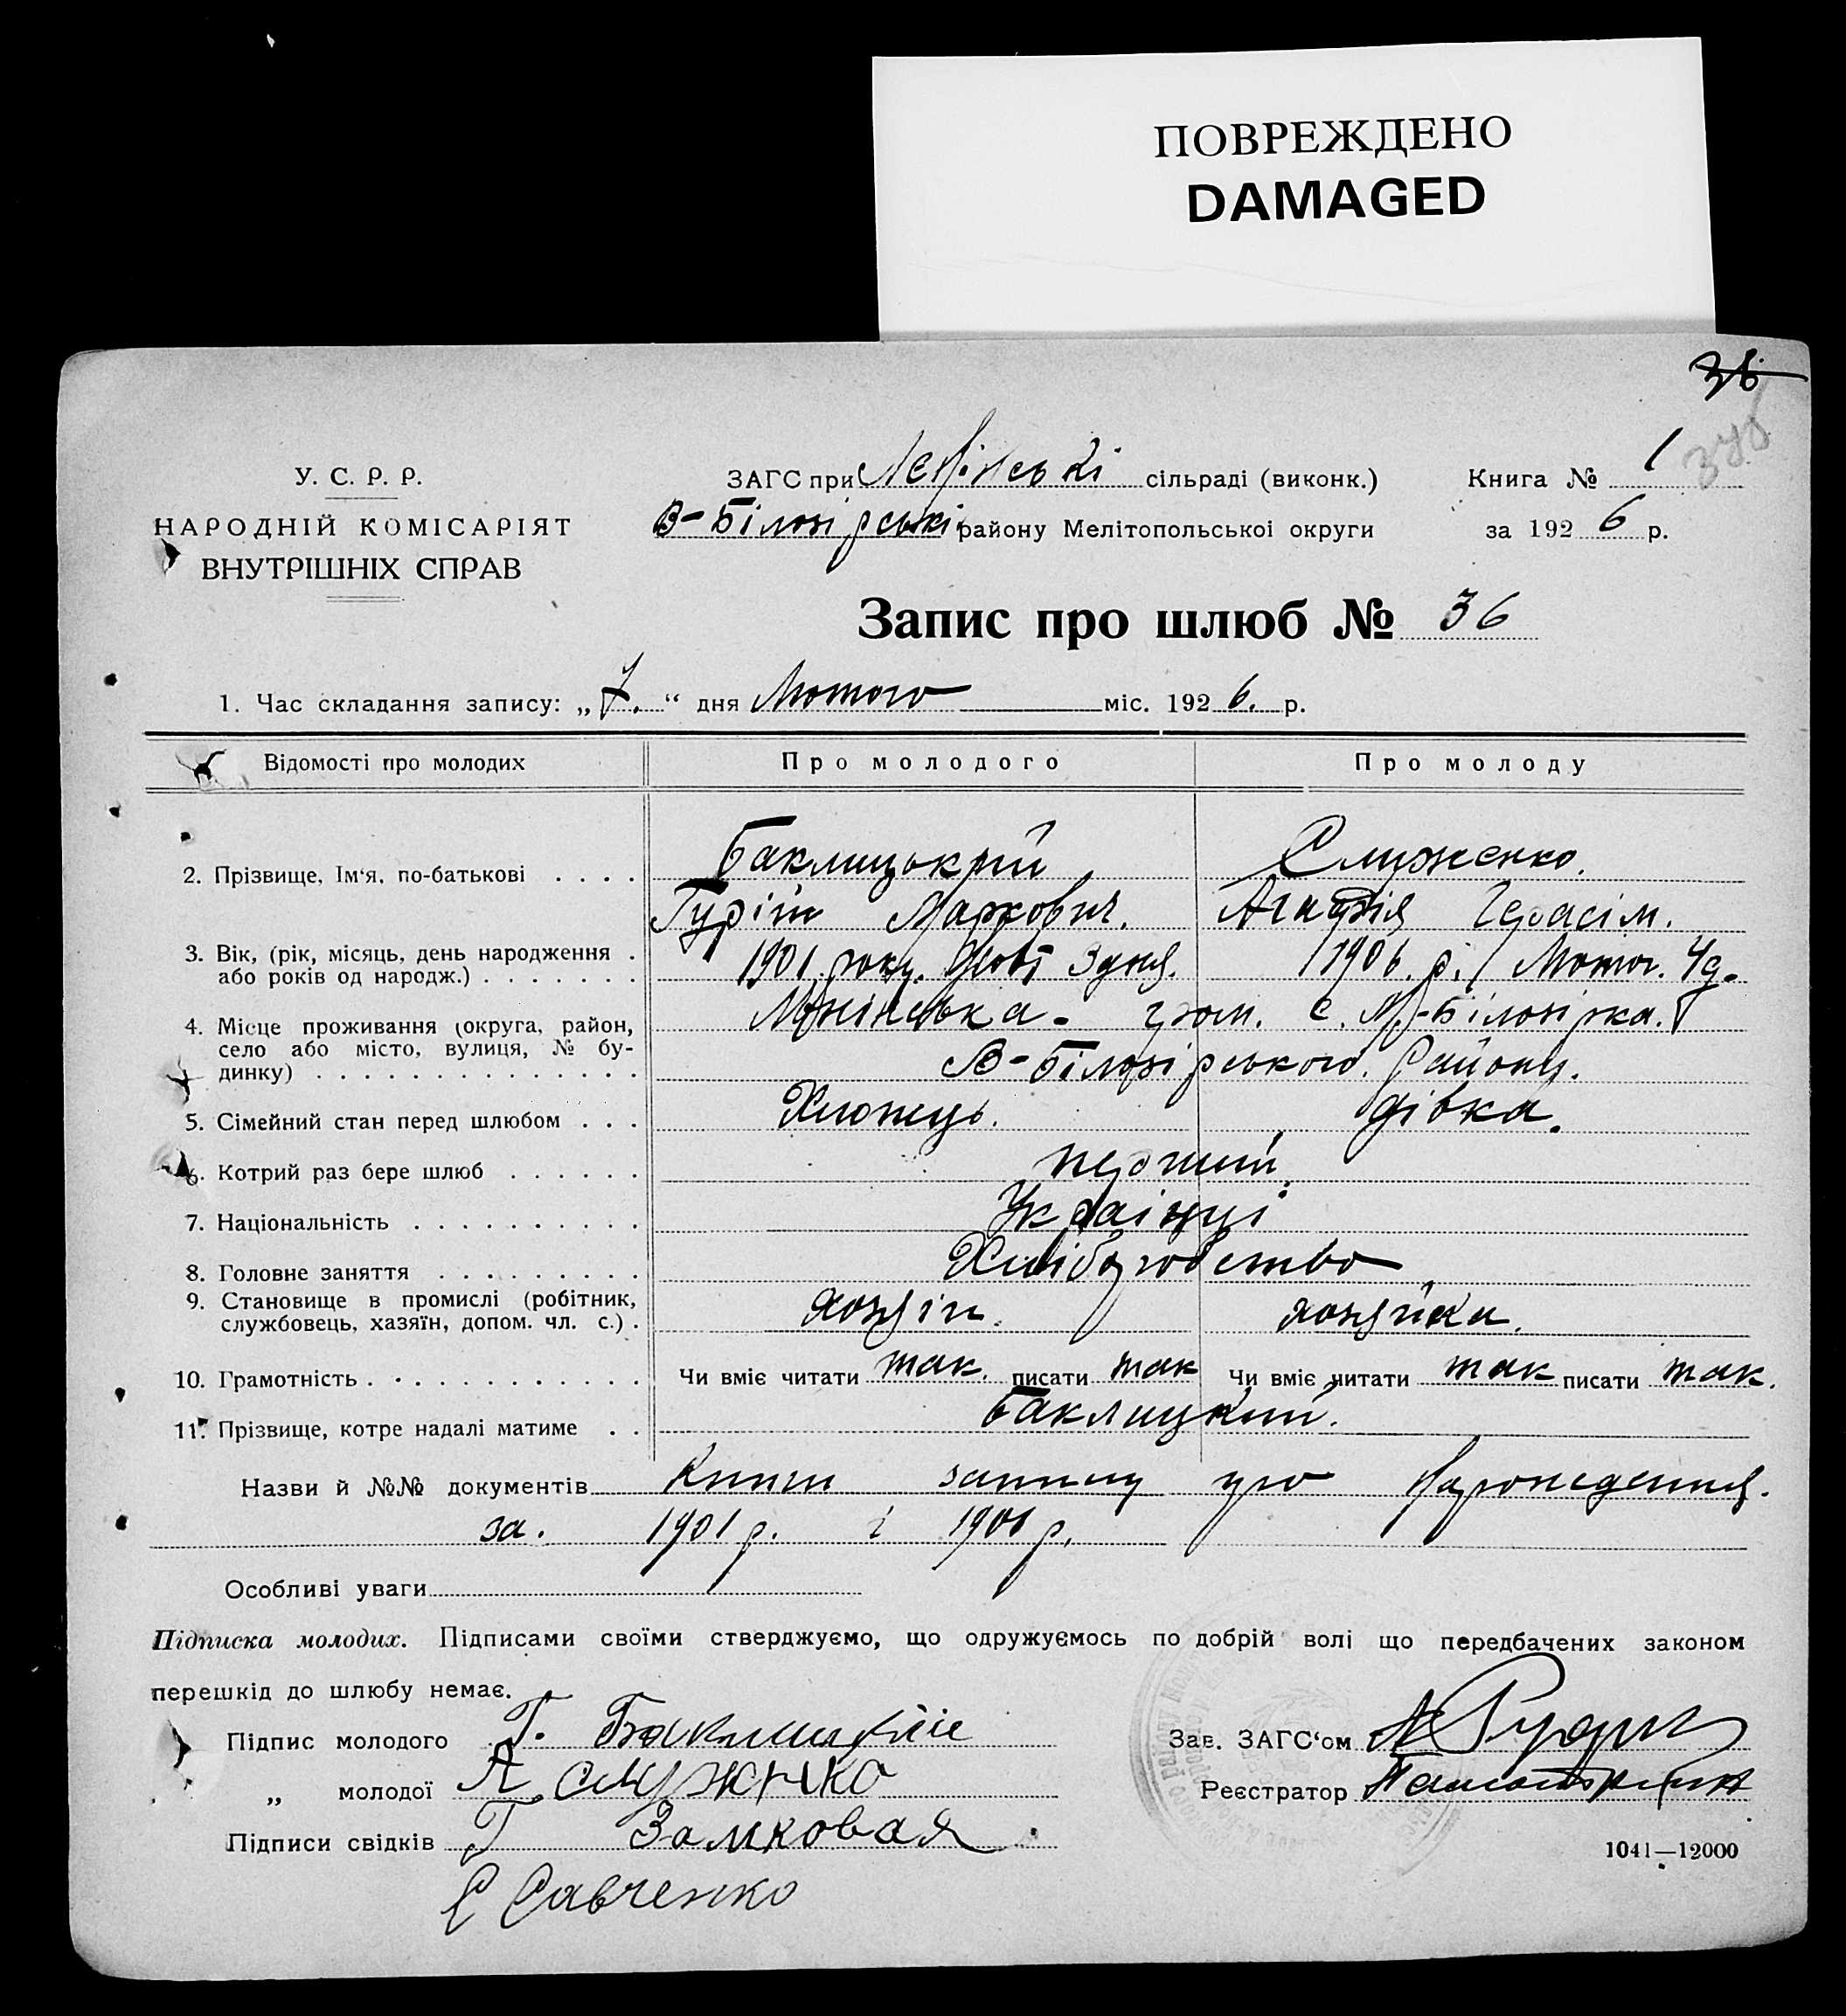 ПОВРЕЖДЕНО
DAMAGED
36
1
У. С. Р. Р.
НАРОДНІЙ КОМІСАРІЯТ
ВНУТРІШНІХ СПРАВ
ЗАГС при Ленінські сільраді (виконк.)
Книга №
В-Білозірські району Мелітопольської округи
за 192 6 р.
Запис про шлюб № 36
1. Час складання запису: „ 7. “ дня Лютого міс. 192 6. р.
Відомості про молодих Про молодого Про молоду
2. Прізвище, Ім‘я, по-батькові . . . . Баклицький Служенко.
Гурій Маркович. Агафія Герасім.
3. Вік, (рік, місяць, день народження . 1901 року. Жовт 3 дня. 1906. р. Лютог. 4 д.
або років од народж.) . . . . . . .
4. Місце проживання (округа, район, гром. с. М-Білозірка.
село або місто, вулиця, № бу-
динку) . . . . . . . . . . . . . . В-Білозірського. Району.
5. Сімейний стан перед шлюбом . . . Хлопець. дівка.
6. Котрий раз бере шлюб . . . . . . перший
7. Національність . . . . . . . . . . Українці
8. Головне заняття . . . . . . . . . Хліборобство
9. Становище в промислі (робітник,
службовець, хазяїн, допом. чл. с.) . хозяін. хозяйка.
10. Грамотність . . . . . . . . . . . . Чи вміє читати так. писати так Чи вміє читати так писати так.
11. Прізвище, котре надалі матиме . . Баклицкий.
Назви й №№ документів Книги запису про Нарождення.
за. 1901 р. і 1906 р.
Особливі уваги
Підписка молодих. Підписами своїми стверджуємо, що одружуємось по добрій волі що передбачених законом
перешкід до шлюбу немає.
Підпис молодого Г. Баклицкій
Зав. ЗАГС‘ом
„ молодої А Служнко
Реєстратор
Підписи свідків Г Замковая
1041—12000
Е Савченко